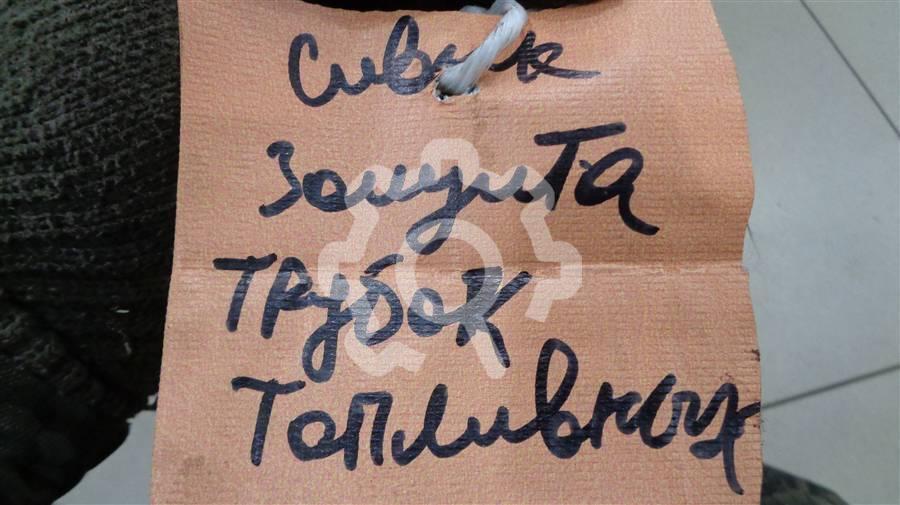 Сивик
Защита
трубок
Топливных